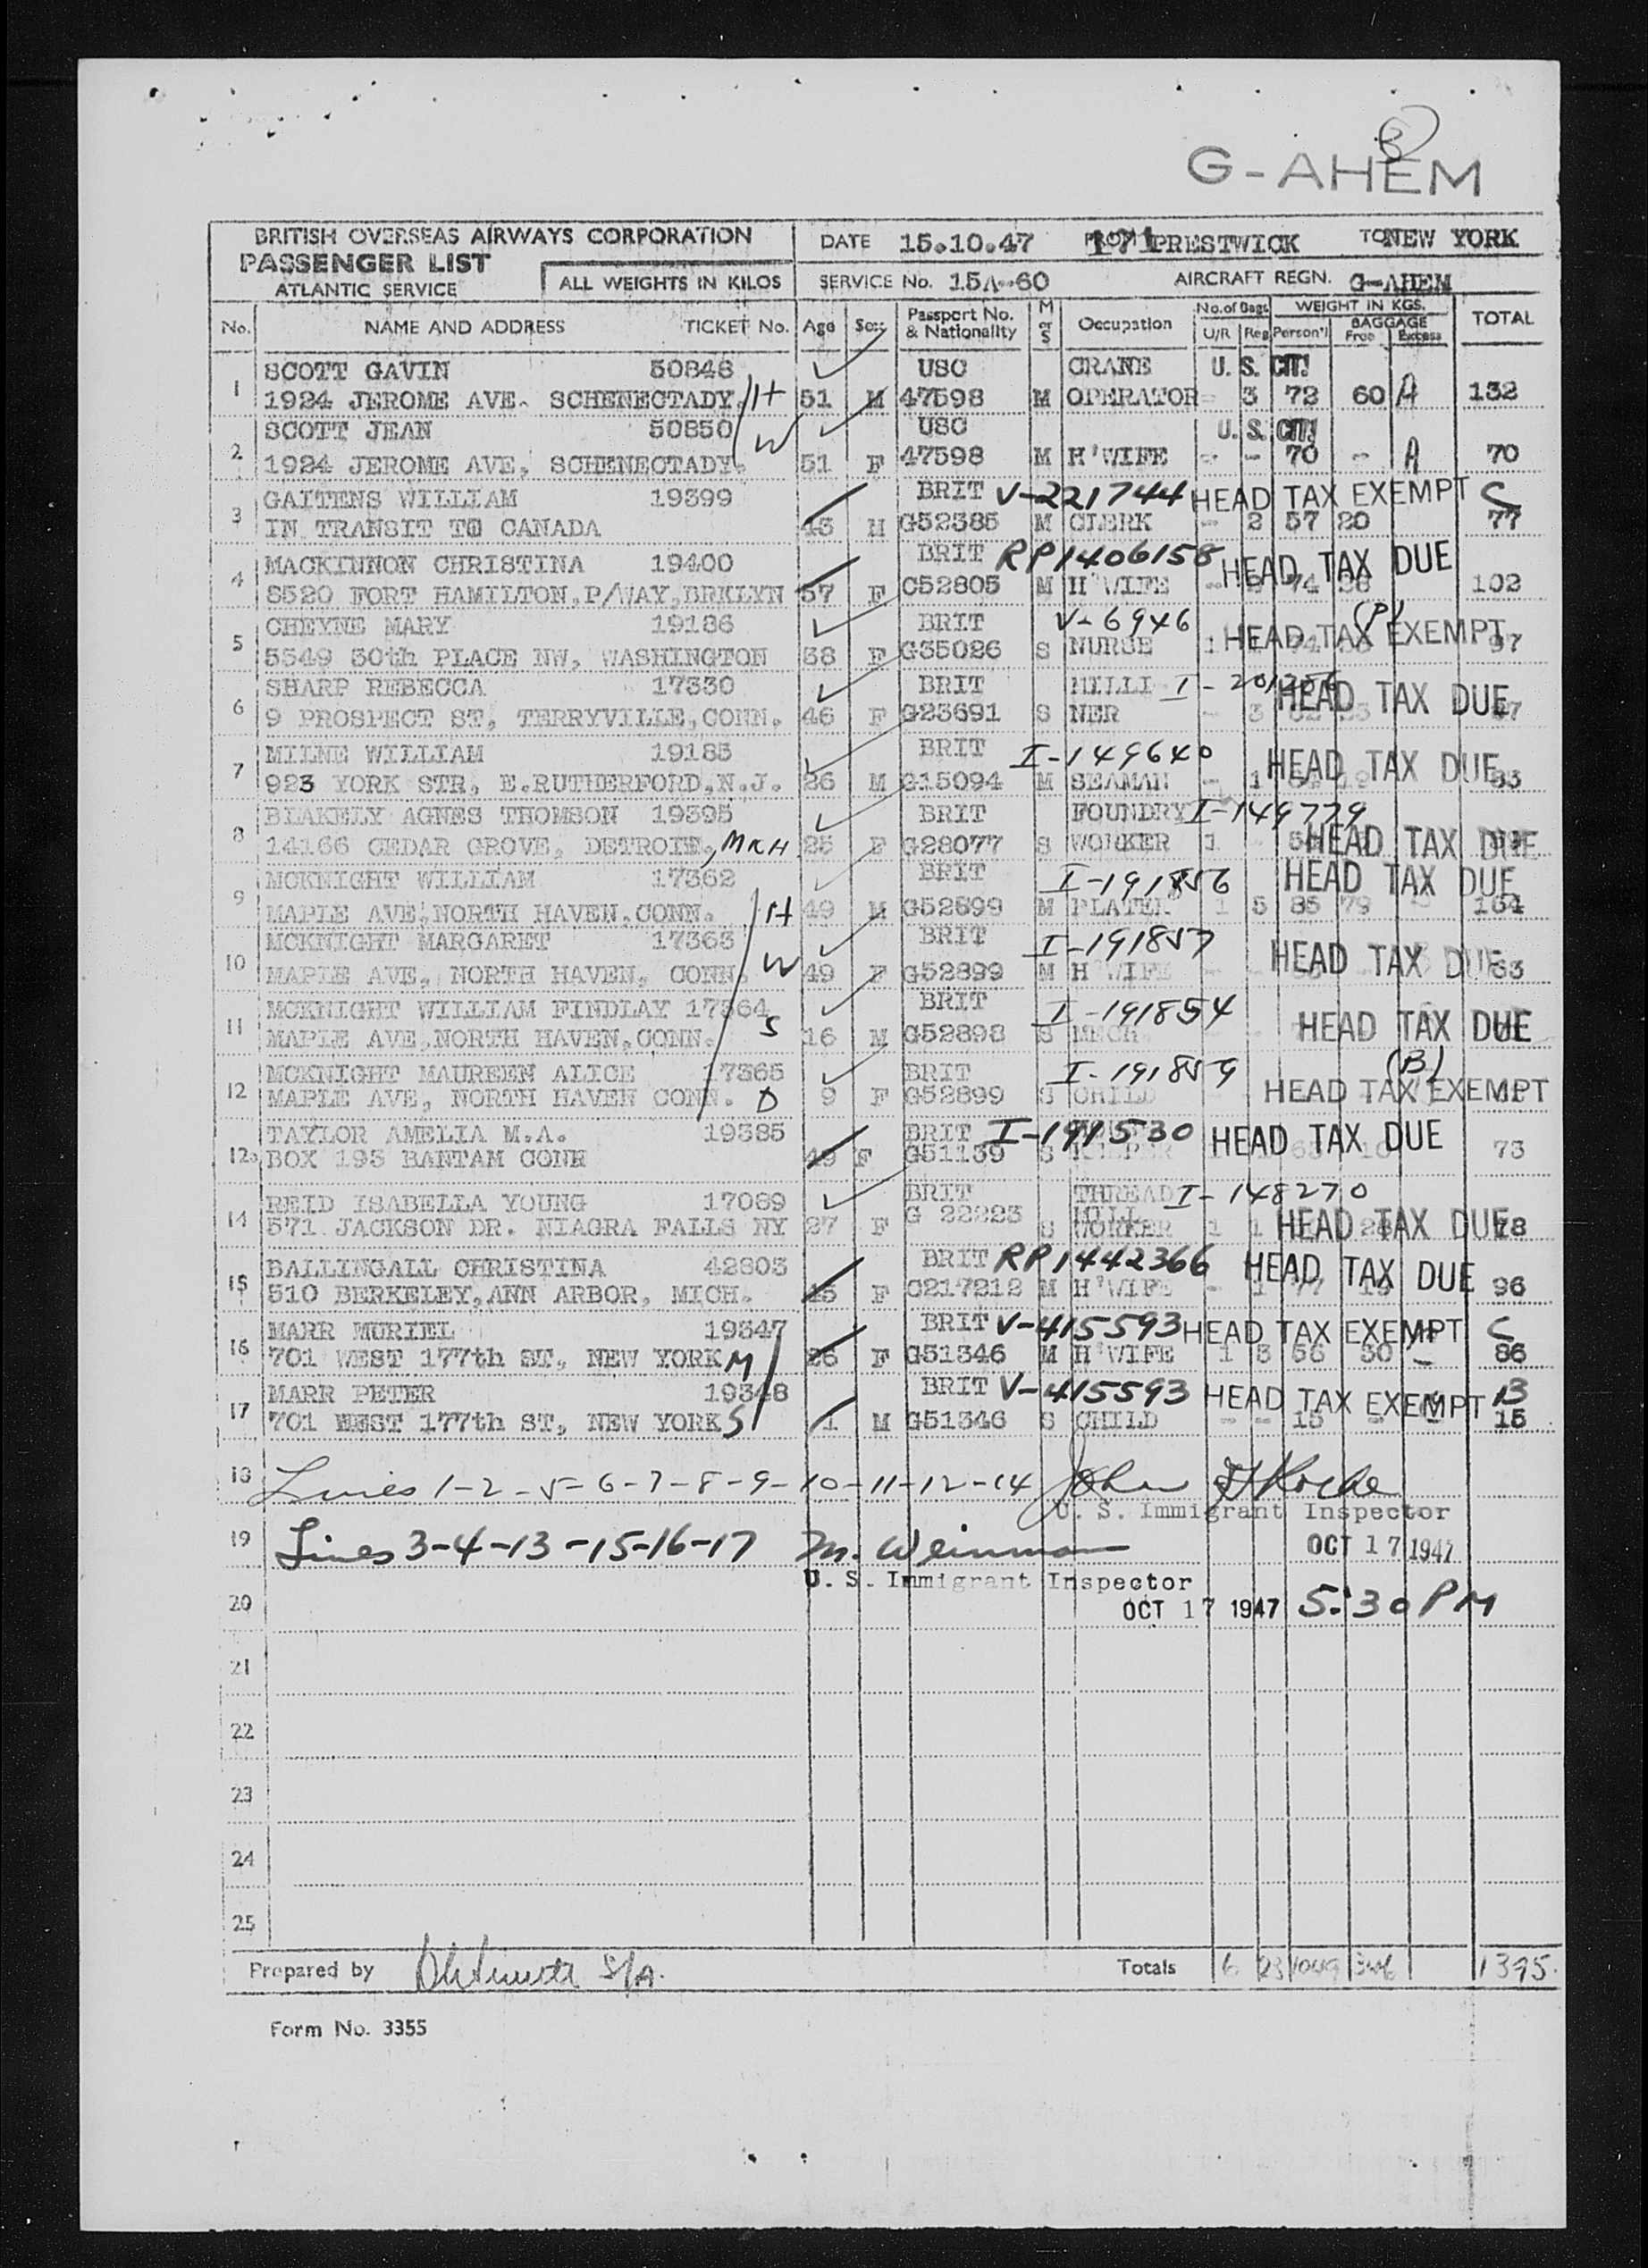 3
G-AHEM
BRITISH OVERSEAS AIRWAYS CORPORATION DATE 15.10.47 171 PRESTWICK TO NEW YORK
PASSENGER LIST
ATLANTIC SERVICE ALL WEIGHTS IN KILOS SERVICE No. 15A-60 AIRCRAFT REGN. G-AHEM
No. NAME AND ADDRESS TICKET No. Age Sex Passport No. & Nationality M or S Occupation No. of Bags U/R Reg WEIGHT IN KGS. Person'l BAGGAGE Free Excess TOTAL
SCOTT GAVIN 50848 USC CRANE U. S. CIT!
1 1924 JEROME AVE. SCHENECTADY. H 51 M 47598 M OPERATOR - 3 72 60 A 132
SCOTT JEAN 50850 W USC U. S. CIT!
2 1924 JEROME AVE, SCHENECTADY. 51 F 47598 M H'WIFE - - 70 - A 70
GAITENS WILLIAM 19399 BRIT V-221744 HEAD TAX EXEMPT C
3 IN TRANSIT TO CANADA 43 M G52385 M CLERK - 2 57 20 77
MACKINNON CHRISTINA 19400 BRIT RP1406158 HEAD TAX DUE
4 8520 FORT HAMILTON,P/WAY,BRKLYN 57 F C52805 M H'WIFE - 74 102
CHEYNE MARY 19186 BRIT V-6946 (P)
5 5549 30th PLACE NW, WASHINGTON 38 F G35026 S NURSE 1 HEAD TAX EXEMPT 97
SHARP REBECCA 17330 BRIT MILLI I-201256
6 9 PROSPECT ST, TERRYVILLE,CONN. 46 F G23691 S NER - 3 HEAD TAX DUE
MILNE WILLIAM 19185 BRIT I-149640 HEAD TAX DUE
7 923 YORK STR, E.RUTHERFORD,N.J. 26 M G15094 M SEAMAN - 1 83
BLAKELY AGNES THOMSON 19395 BRIT FOUNDRY I-149779
8 14166 CEDAR GROVE, DETROIT, MKH 25 F G28077 S WORKER 1 HEAD TAX DUE
MCKNIGHT WILLIAM 17362 BRIT I-191856 HEAD TAX DUE
9 MAPLE AVE,NORTH HAVEN,CONN. H 49 M G52899 M PLATER 1 5 85 79 164
MCKNIGHT MARGARET 17363 BRIT I-191857
10 MAPLE AVE, NORTH HAVEN, CONN. W 49 F G52899 M H'WIFE HEAD TAX DUE
MCKNIGHT WILLIAM FINDLAY 17364 BRIT I-191854
11 MAPLE AVE,NORTH HAVEN,CONN. S 16 M G52898 S HEAD TAX DUE
MCKNIGHT MAUREEN ALICE 17365 BRIT I-191859 (B)
12 MAPLE AVE, NORTH HAVEN CONN. D 9 F G52899 S CHILD HEAD TAX EXEMPT
TAYLOR AMELIA M.A. 19385 BRIT I-191530 HEAD TAX DUE
12a BOX 195 BANTAM CONN 49 F G51139 S 73
REID ISABELLA YOUNG 17089 BRIT THREAD I-148270
14 571 JACKSON DR. NIAGRA FALLS NY 27 F G 22223 S MILL WORKER 1 1 HEAD TAX DUE 78
BALLINGALL CHRISTINA 42803 BRIT RP1442366 HEAD TAX DUE
15 510 BERKELEY,ANN ARBOR, MICH. F C217212 M H'WIFE - 1 77 19 96
MARR MURIEL 19347 BRIT V-415593 HEAD TAX EXEMPT C
16 701 WEST 177th ST, NEW YORK M 26 F G51346 M H'WIFE 1 3 56 30 - 86
MARR PETER 19348 BRIT V-415593 HEAD TAX EXEMPT B
17 701 WEST 177th ST, NEW YORK S 1 M G51346 S CHILD - - 15 - - 15
18 Lines 1-2-5-6-7-8-9-10-11-12-14 John
U. S. Immigrant Inspector
19 Lines 3-4-13-15-16-17 M. Weinman OCT 17 1947
U. S. Immigrant Inspector
20 OCT 17 1947 5:30 PM
21
22
23
24
25
Prepared by S/A. Totals 6 1395.
Form No. 3355